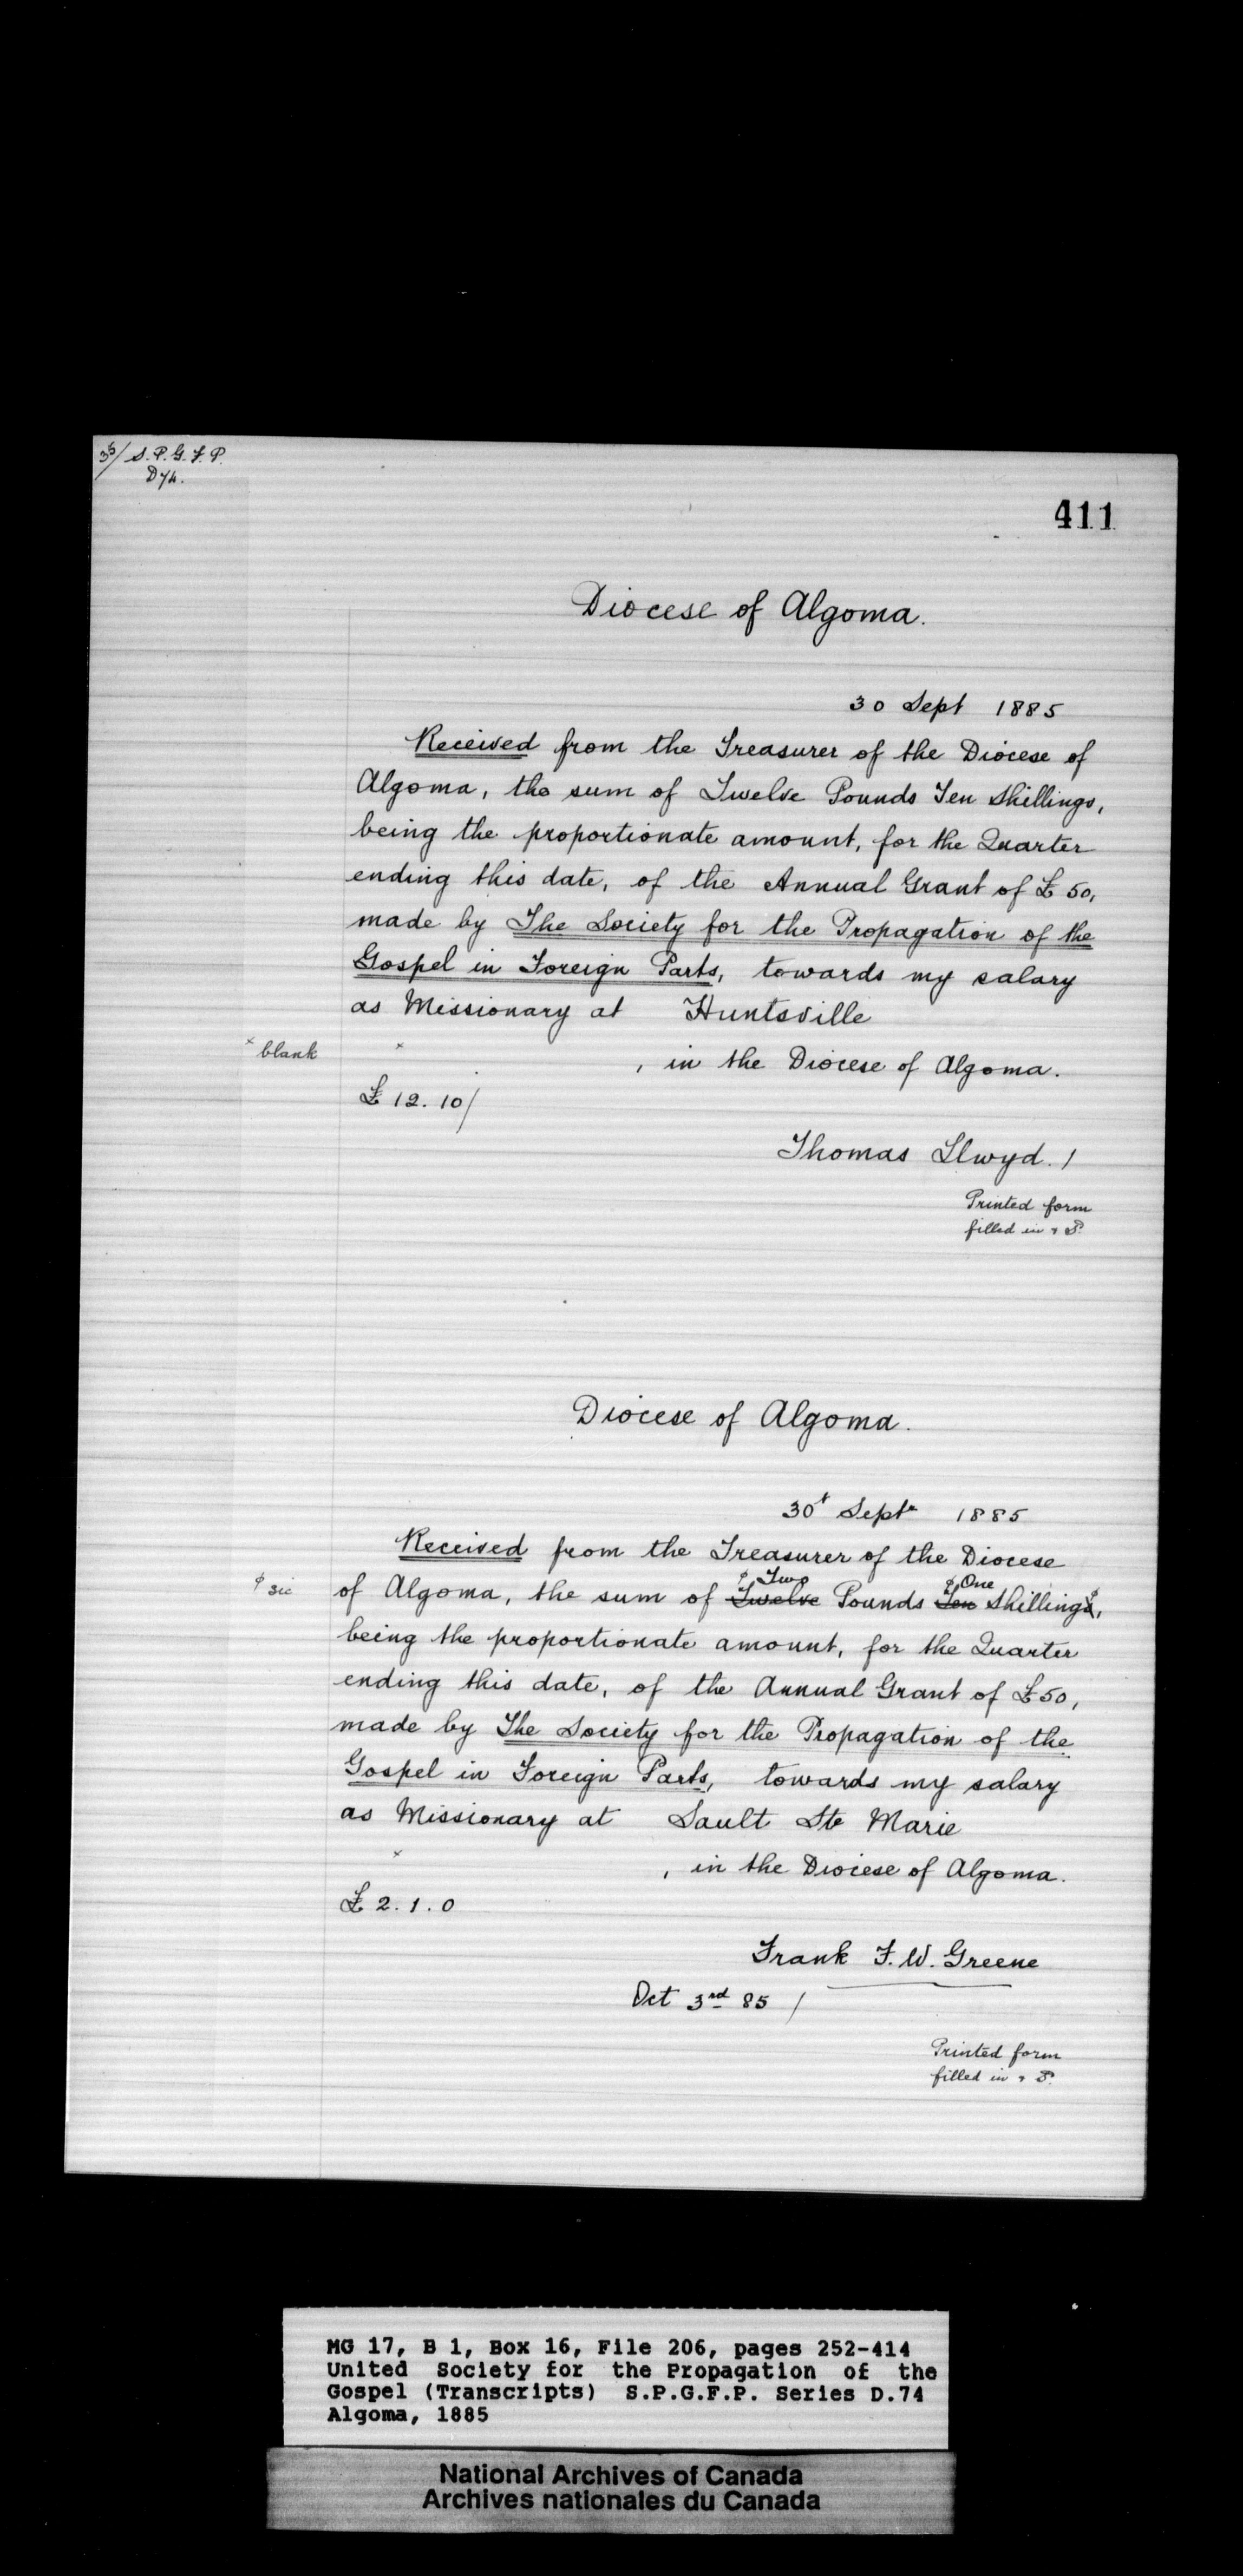 36/ S.P.G.F.P.
D74.
411
Diocese of Algoma.
30 Sept 1885
Received from the Treasurer of the Diocese of
Algoma, the sum of Twelve Pounds Ten Shillings,
being the proportionate amount, for the Quarter
ending this date, of the Annual Grant of £50,
made by The Society for the Propagation of the
Gospel in Foreign Parts, towards my salary
as Missionary at Huntsville
x blank x , in the Diocese of Algoma.
£12.10/
Thomas Llwyd. /
Printed form
filled in
Diocese of Algoma.
30t Septr 1885
Received from the Treasurer of the Diocese
Two One
sic of Algoma, the sum of Twelve Pounds Ten Shillings,
being the proportionate amount, for the Quarter
ending this date, of the Annual Grant of £50,
made by The Society for the Propagation of the
Gospel in Foreign Parts, towards my salary
as Missionary at Sault Ste Marie
x , in the Diocese of Algoma.
£2.1.0
Frank F.W. Greene
Oct 3rd 85 /
Printed form
filled in
MG 17, B 1, Box 16, File 206, pages 252-414
United Society for the Propagation of the
Gospel (Transcripts) S.P.G.F.P. Series D.74
Algoma, 1885
National Archives of Canada
Archives nationales du Canada